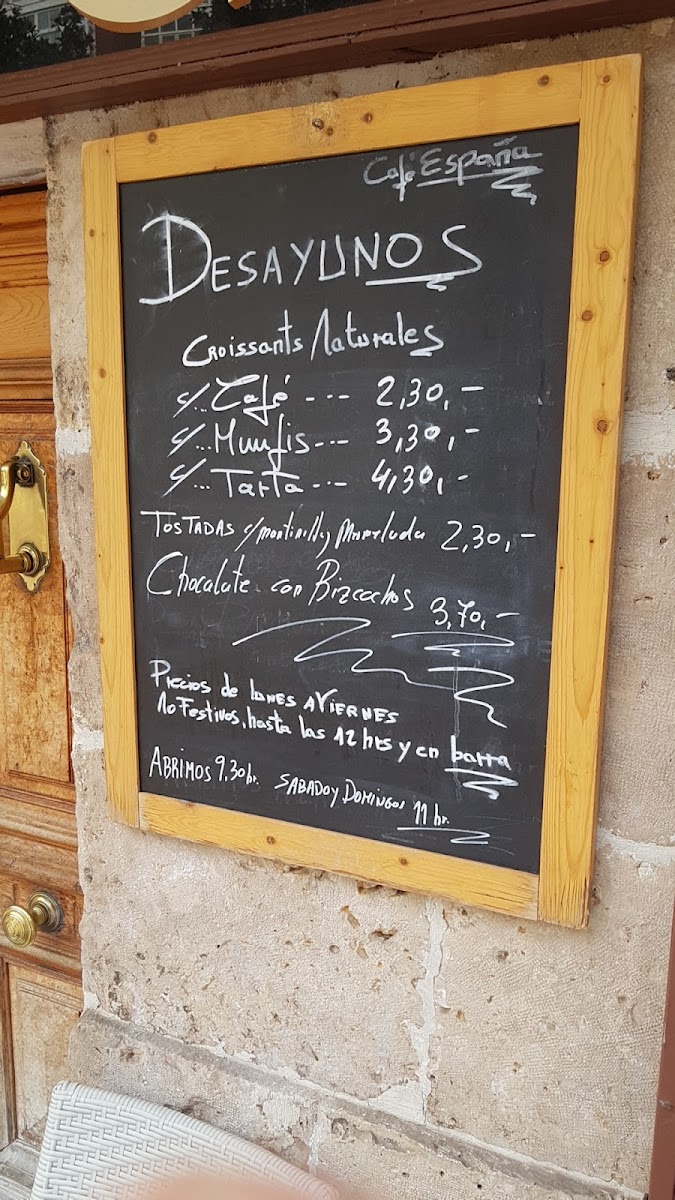 Café España
DESAYUNOS
Croissants Naturales
c/... Café --·- 2,30,-
c/... Mumfis --·- 3,30,-
c/... Tarta --·- 4,30,-
TOSTADAS c/mantiquilla y Marmelada 2,30,-
Chocolate con Bizcochos 3,70,-
Precios de lunes a VIERNES
No Festivos, hasta las 12 hrs y en barra
ABRIMOS 9,30 hr. SABADO Y DOMINGOS 11 hr.